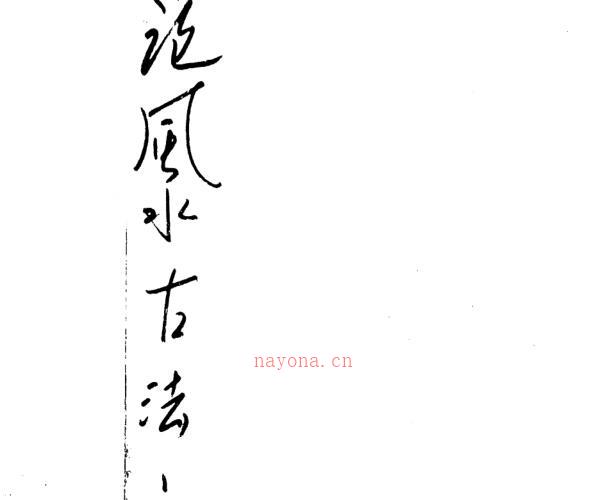 風水古法
nayona.cn